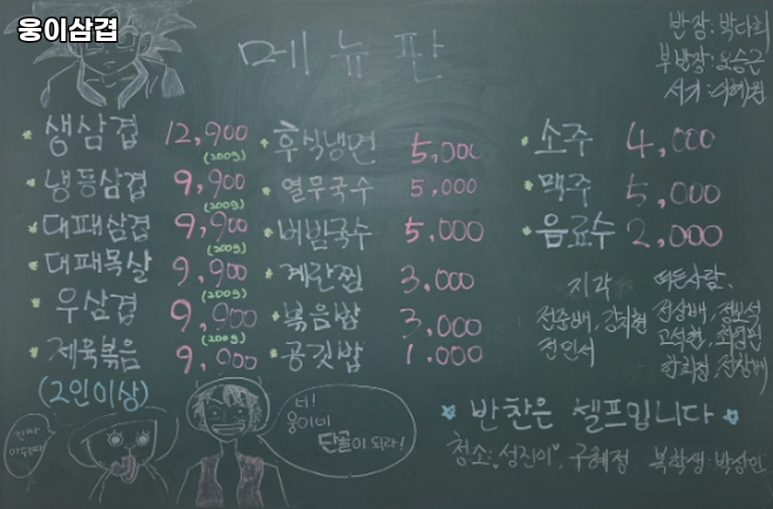 웅이삼겹
메뉴판
반장: 박다희
부반장: 오승근
서기: 이혜원
생삼겹 12,900 (200g)
냉동삼겹 9,900 (200g)
대패삼겹 9,900 (200g)
대패목살 9,900 (200g)
우삼겹 9,900 (200g)
제육볶음 9,900
(2인이상)
후식냉면 5,000
열무국수 5,000
비빔국수 5,000
계란찜 3,000
볶음밥 3,000
공깃밥 1.000
소주 4,000
맥주 5,000
음료수 2,000
지각
전준배, 김지현
전민서
떠든사람.
전상배,
고석현,
한희정, 전상배
너!
웅이네
단골이 되라!
반찬은 셀프입니다
청소: 성진이♥, 구혜정 복학생: 박상민